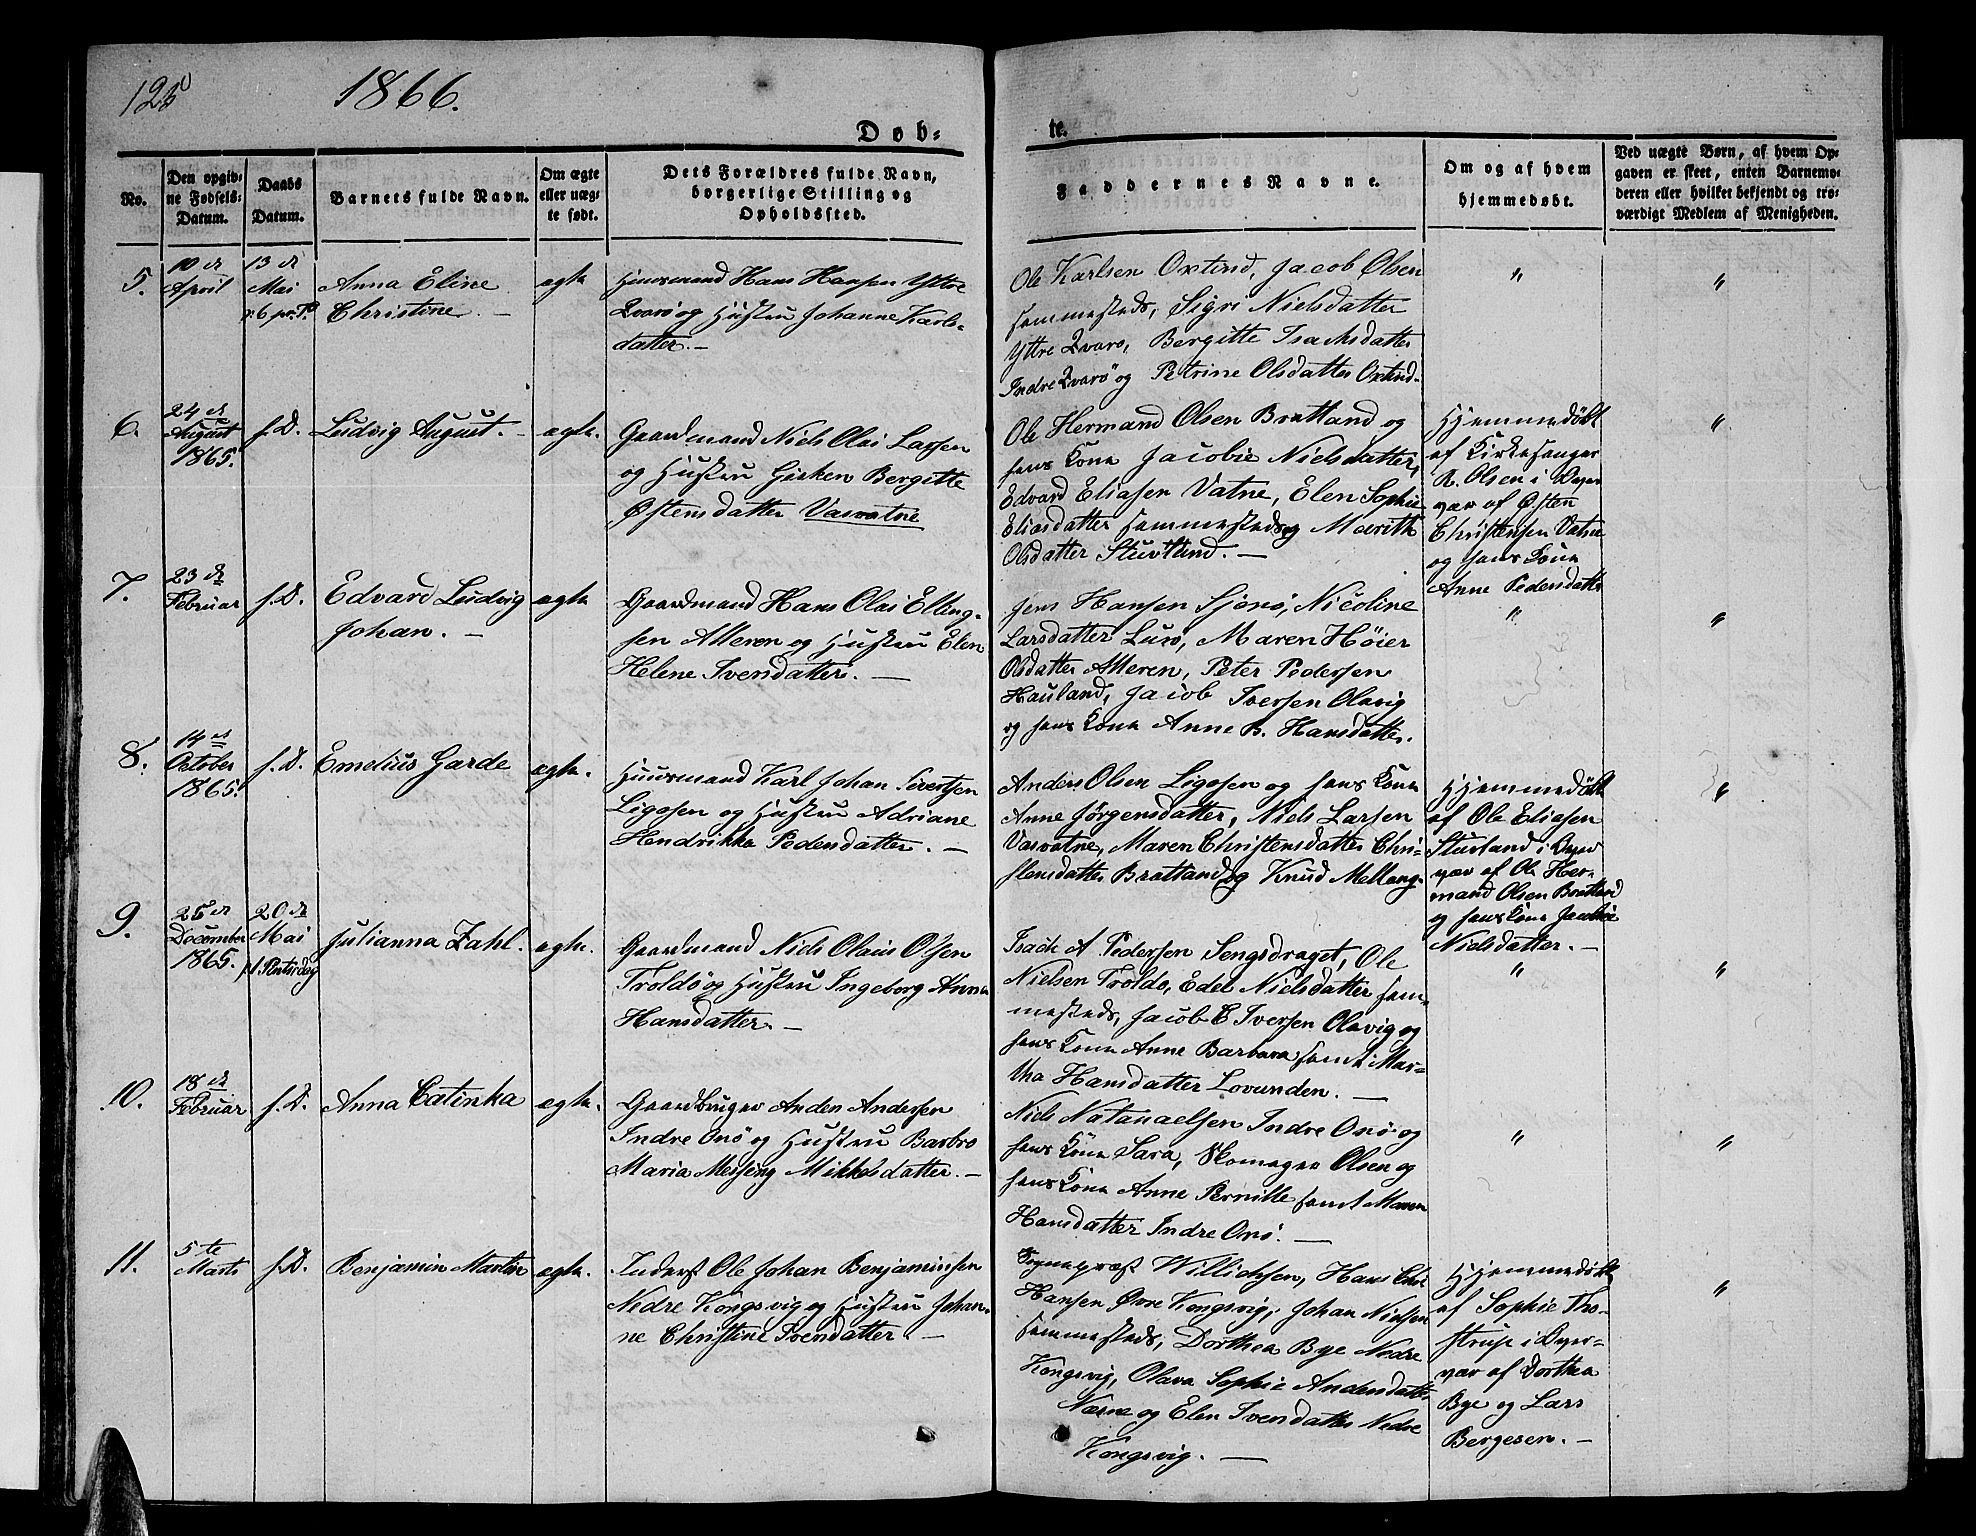 125
1866.
Døb-
te.
No.
Den opgiv-
ne Fødsels-
Datum.
Daabs
Datum.
Barnets fulde Navn.
Om ægte
eller uæg-
te født.
Dets Forældres fulde Navn,
borgerlige Stilling og
Opholdssted.
Faddernes Navne.
Om og af hvem
hjemmedøbt.
Ved uægte Børn, af hvem Op-
gaven er skeet, enten Barnemo-
deren eller hvilket bekjendt og tro-
værdigt Medlem af Menigheden.
5.
10de
April
13de
Mai
Anna Eline
Christine. —
ægte
Huusmand Hans Hansen Yttre
Qvarø og Hustru Johanne Karls-
datter. —
Ole Karlsen Oxtind, Jacob Olsen
sammesteds, Sigri Nielsdatter
Yttre Qvarø, Bergitte Isachsdatter
Indre Qvarø og Petrine Olsdatter Oxtind.
"
"
6.
24de
August
1865.
s. D.
Ludvig August. -
ægte.
Gaardmand Niels Olai Larsen
og Hustru Gisken Bergitte
Østensdatter Vasvatne
Ole Hermand Olsen Bratland og
hans Kone Jacobie Nielsdatter,
Edvard Eliasen Vatne, Elen Sophie
Eliasdatter sammesteds og Marith
Olsdatter Stuvland. —
Hjemmedøbt
af Kirkesanger
R. Olsen i Over
vær af Østen
Christensen Vatne
og hans Kone
Anne Pedersdatter
"
7.
23de
Februar
s. D.
Edvard Ludvig
Johan. —
ægte
Gaardmand Hans Olai Elling-
sen Alteren og Hustru Elen
Helene Iversdatter. —
Jens Hansen Sjonø, Nicoline
Larsdatter Lurø, Maren Høier
Olsdatter Alteren, Peter Pedersen
Hauland, Jacob Iversen Olavig
og hans Kone Anne B. Hansdatter.
"
"
8.
14de
October
1865.
s. D.
Emelius Garde
ægte.
Huusmand Karl Johan Sivertsen
Ligosen og Hustru Adriane
Hendrikka Pedersdatter. —
Anders Olsen Ligosen og hans Kone
Anne Jørgensdatter, Niels Larsen
Vasvatne, Maren Christensdatter Chri-
stensdatter Bratland og Knud Mellang-
Hjemmedøbt
af Ole Eliasen
Stuvland i Over
vær af Ole Her-
mand Olsen Bratland
og hans Kone Jacobie
Nielsdatter. —
"
9.
25de
December
1865.
20de
Mai
1. Pintsedag
Julianna Zahl.
ægte.
Gaardmand Niels Olaus Olsen
Troldø og Hustru Ingeborg Anna
Hansdatter. —
Isach A Pedersen Sengsdraget, Ole
Nielsen Troldø, Edel Nielsdatter sam-
mesteds, Jacob E Iversen Olavig og
hans Kone Anne Barbara samt Mar-
tha Hansdatter Lovunden. —
"
"
10.
18de
Februar
s. D.
Anna Catinka
ægte.
Gaardbruger Anders Andersen
Indre Onø og Hustru Barbro
Maria Messing Mikkelsdatter. —
Niels Natanaelsen Indre Onø og
hans Kone Sara, Skomager Olsen og
hans Kone Anne Pernille samt Maren
Hansdatter Indre Onø. —
"
"
11.
5te
Marts
s. D.
Benjamin Martin
ægte.
Inderst Ole Johan Benjaminsen
Nedre Kongsvig og Hustru Johan-
ne Christine Iversdatter —
Sognepræst Willichsen, Hans Chr.
Hansen Øvre Kongsvig, Johan Nielsen
sammesteds, Dorthea Bye Nedre
Kongsvig, Olava Sophie Andersdatter
Næsne og Elen Iversdatter Nedre
Kongsvig. —
Hjemmedøbt
af Sophie Tho-
strup i Over-
vær af Dorthea
Bye og Lars
Bergesen. —
"